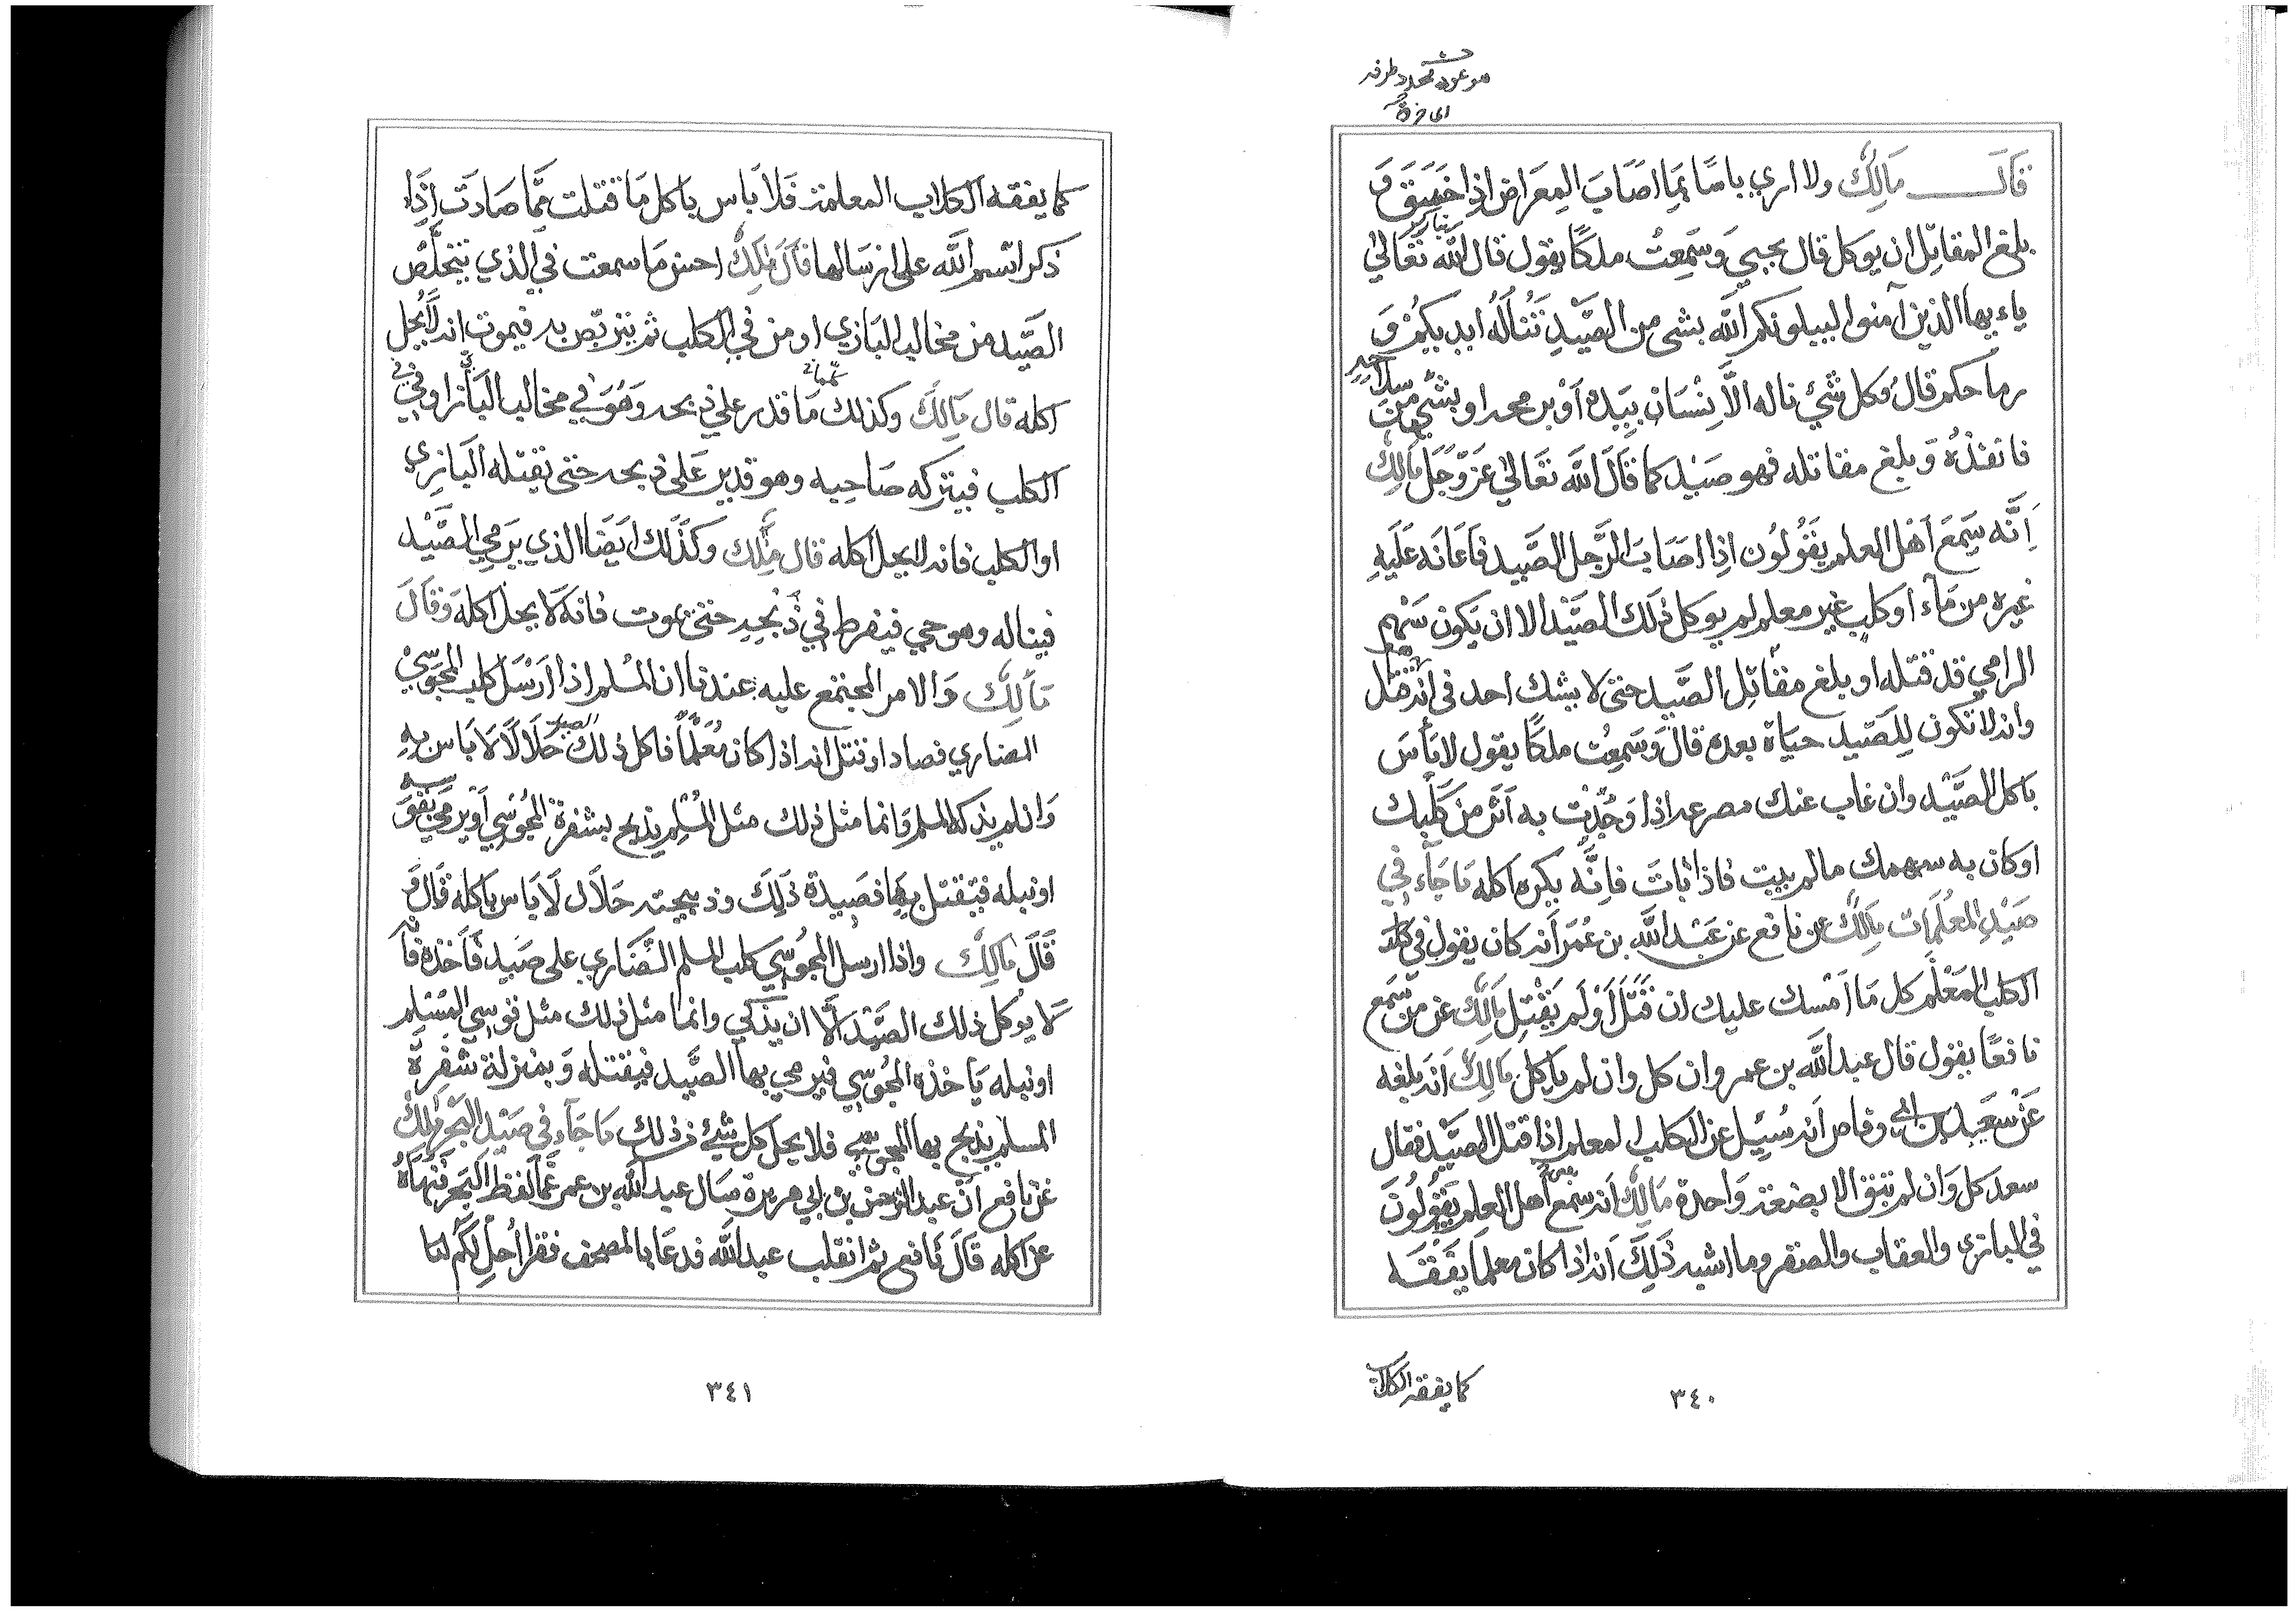 قال مالك ولا اري باسا بما اصاب المعراض اذا خسق و
بلغ المقاتل ان يوكل قال يحيي وسمعت ملكا يقول قال الله تعالي
ياءيها الذين آمنوا ليبلونكم الله بشى من الصيد تناله ايديكم و
رماحكم قال وكل شئ ناله الانسان بيده او برمحه او بشئ من سلاحه
فانفذه وبلغ مقاتله فهو صيد كما قال الله تعالي عز وجل مالك
انه سمع اهل العلم يقولون اذا اصاب الرجل الصيد فاعانه عليه
غيره من ماء او كلب غير معلم لم يوكل ذلك الصيد الا ان يكون سهم
الرامي قد قتله او بلغ مقاتل الصيد حتى لا يشك احد فى انه قتل
وانه لا تكون للصيد حياة بعده قال وسمعت ملكا يقول لا باس
باكل الصيد وان غاب عنك مصرعه اذا وجدت به اثر من كلبك
او كان به سهمك مالم يبيت فاذا بات فانه يكره اكله ما جاء في
صيد المعلمات مالك عن نافع عن عبد الله بن عمر انه كان يقول فى
الكلب المعلم كل ما امسك عليك ان قتل او لم يقتل مالك عن من سمع
نافعا يقول قال عبد الله بن عمر وان كل وان لم ياكل مالك انه بلغه
عن سعد بن ابي وقاص انه سئيل عن الكلب لمعلم اذا قتل الصيد فقال
سعد كل وان لم تبق الا بضعة واحدة مالك انه سمع اهل العلم يقولون
في البازى والعقاب والصقر وما اشبه ذلك انه اذا كان معلما يفقه
كما يفقه الكلاب
٣٤٠
كما يفقه الكلاب المعلمة فلا باس باكل ما قتلت مما صادت اذا
ذكر اسم الله على ارسالها قال ملك احسن ما سمعت في الذي يتخلص
الصيد من مخاليب البازي او من في الكلب ثم يتربص به فيموت انه لا يحل
اكله قال مالك وكذلك ما قدر علي ذبحه وهو في مخاليب الباز او في في
الكلب فيتركه صاحبه وهو قدير على ذبحه حتى تقتله البازي
او الكلب فانه لا يحل اكله قال ملك وكذلك ايضا الذي يرمي الصيد
فيناله وهو حي فيفرط في ذبحه حتى يموت فانه لا يحل اكله وقال
مالك والامر المجتمع عليه عندنا ان المسلم اذا ارسل كلب المجوسي
الضاري فصاد او قتل انه اذا كان معلما فاكل ذلك الصيد حلالا لا باس به
وان لم يذكه المسلم وانما مثل ذلك مثل المسلم يذبح بشفرة المجوسي او يرمي بقوسه
او نبله فيقتل بها فصيده ذلك وذبيحته حلال لا باس باكله قال و
قال مالك واذا ارسل المجوسي كلب المسلم الضاري على صيد فاخذه فانه
لا يوكل ذلك الصيد الا ان يذكي وانما مثل ذلك مثل قوسي المسلم
او نبله ياخذه المجوسي فيرمي بها الصيد فيقتله وبمنزلة شفرة
المسلم يذبح بها المجوسي فلا يحل كل شئ من ذلك ما جاء فى صيد البحر مالك
عن نافع ان عبد الرحمن بن ابي هريرة سال عبد الله بن عمر عما لفظ البحر فنهاه
عن اكله قال نافع ثم انقلب عبد الله فدعا بالمصحف فقرا احل لكم لنا
٣٤١